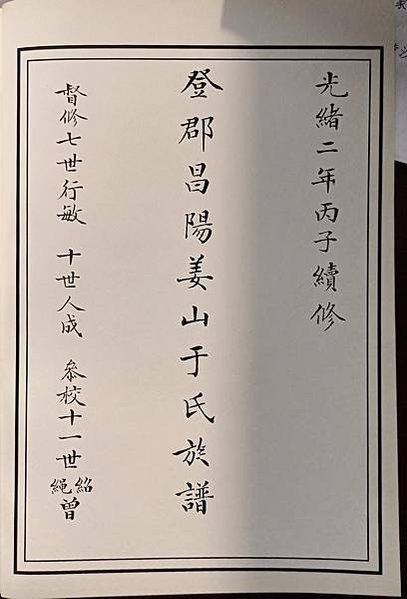 光緒二年丙子續修
登郡昌陽姜山于氏族譜
督修七世行敏 十世人成 叅校十一世紹繩曾